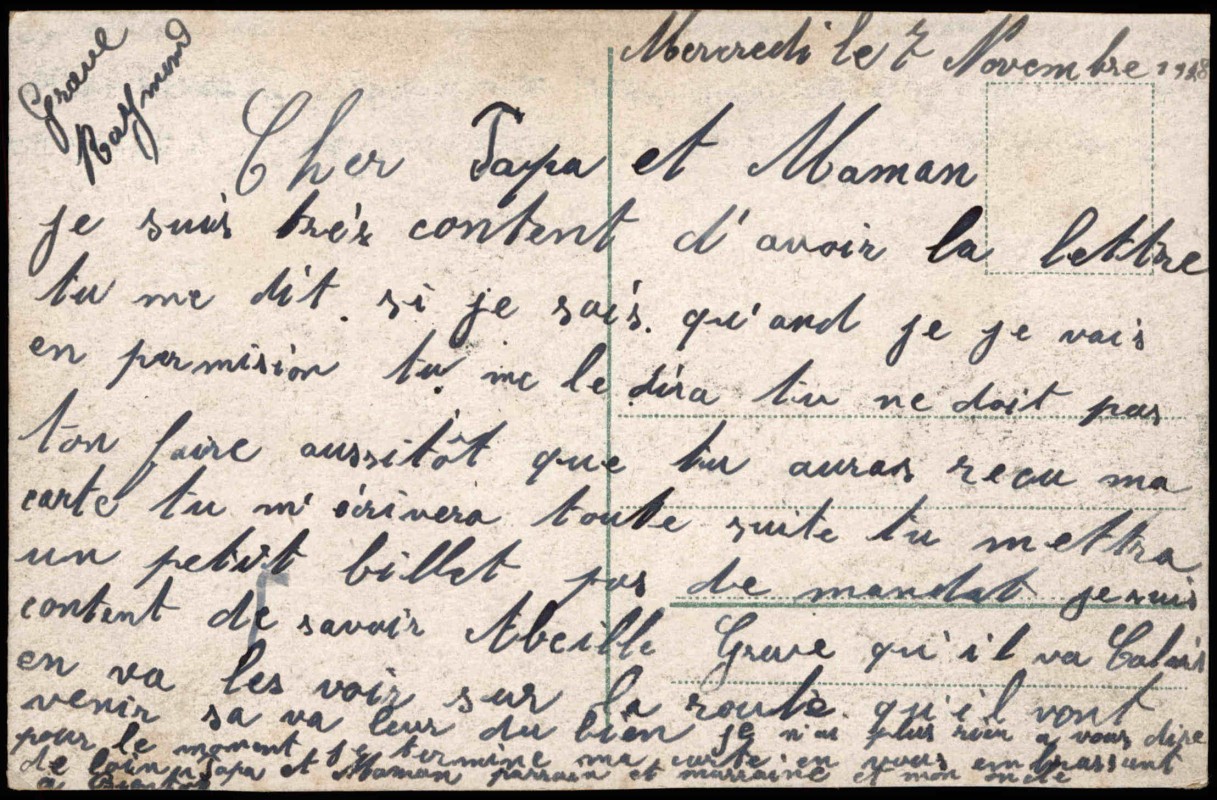 Grave
Raymond
Mercredi le 7 Novembre 1918
Cher Papa et Maman
je suis trés content d'avoir la lettre
tu me dit. si je sais. qu'and je je vais
en permision tu me le dira tu ne doit pas
ton faire aussitôt que tu auras recu ma
carte tu m'écrivera toute suite tu mettra
un petit billet pas de mandat je suis
content de savoir Abeille Grave qu'il va Calais
en va les voir sur la route qu'il vont
venir sa va leur du bien je n'ai plus rien a vous dire
pour le moment je termine ma carte en vous embrassant
de loin Papa et Maman parrain et marraine et mon oncle
a